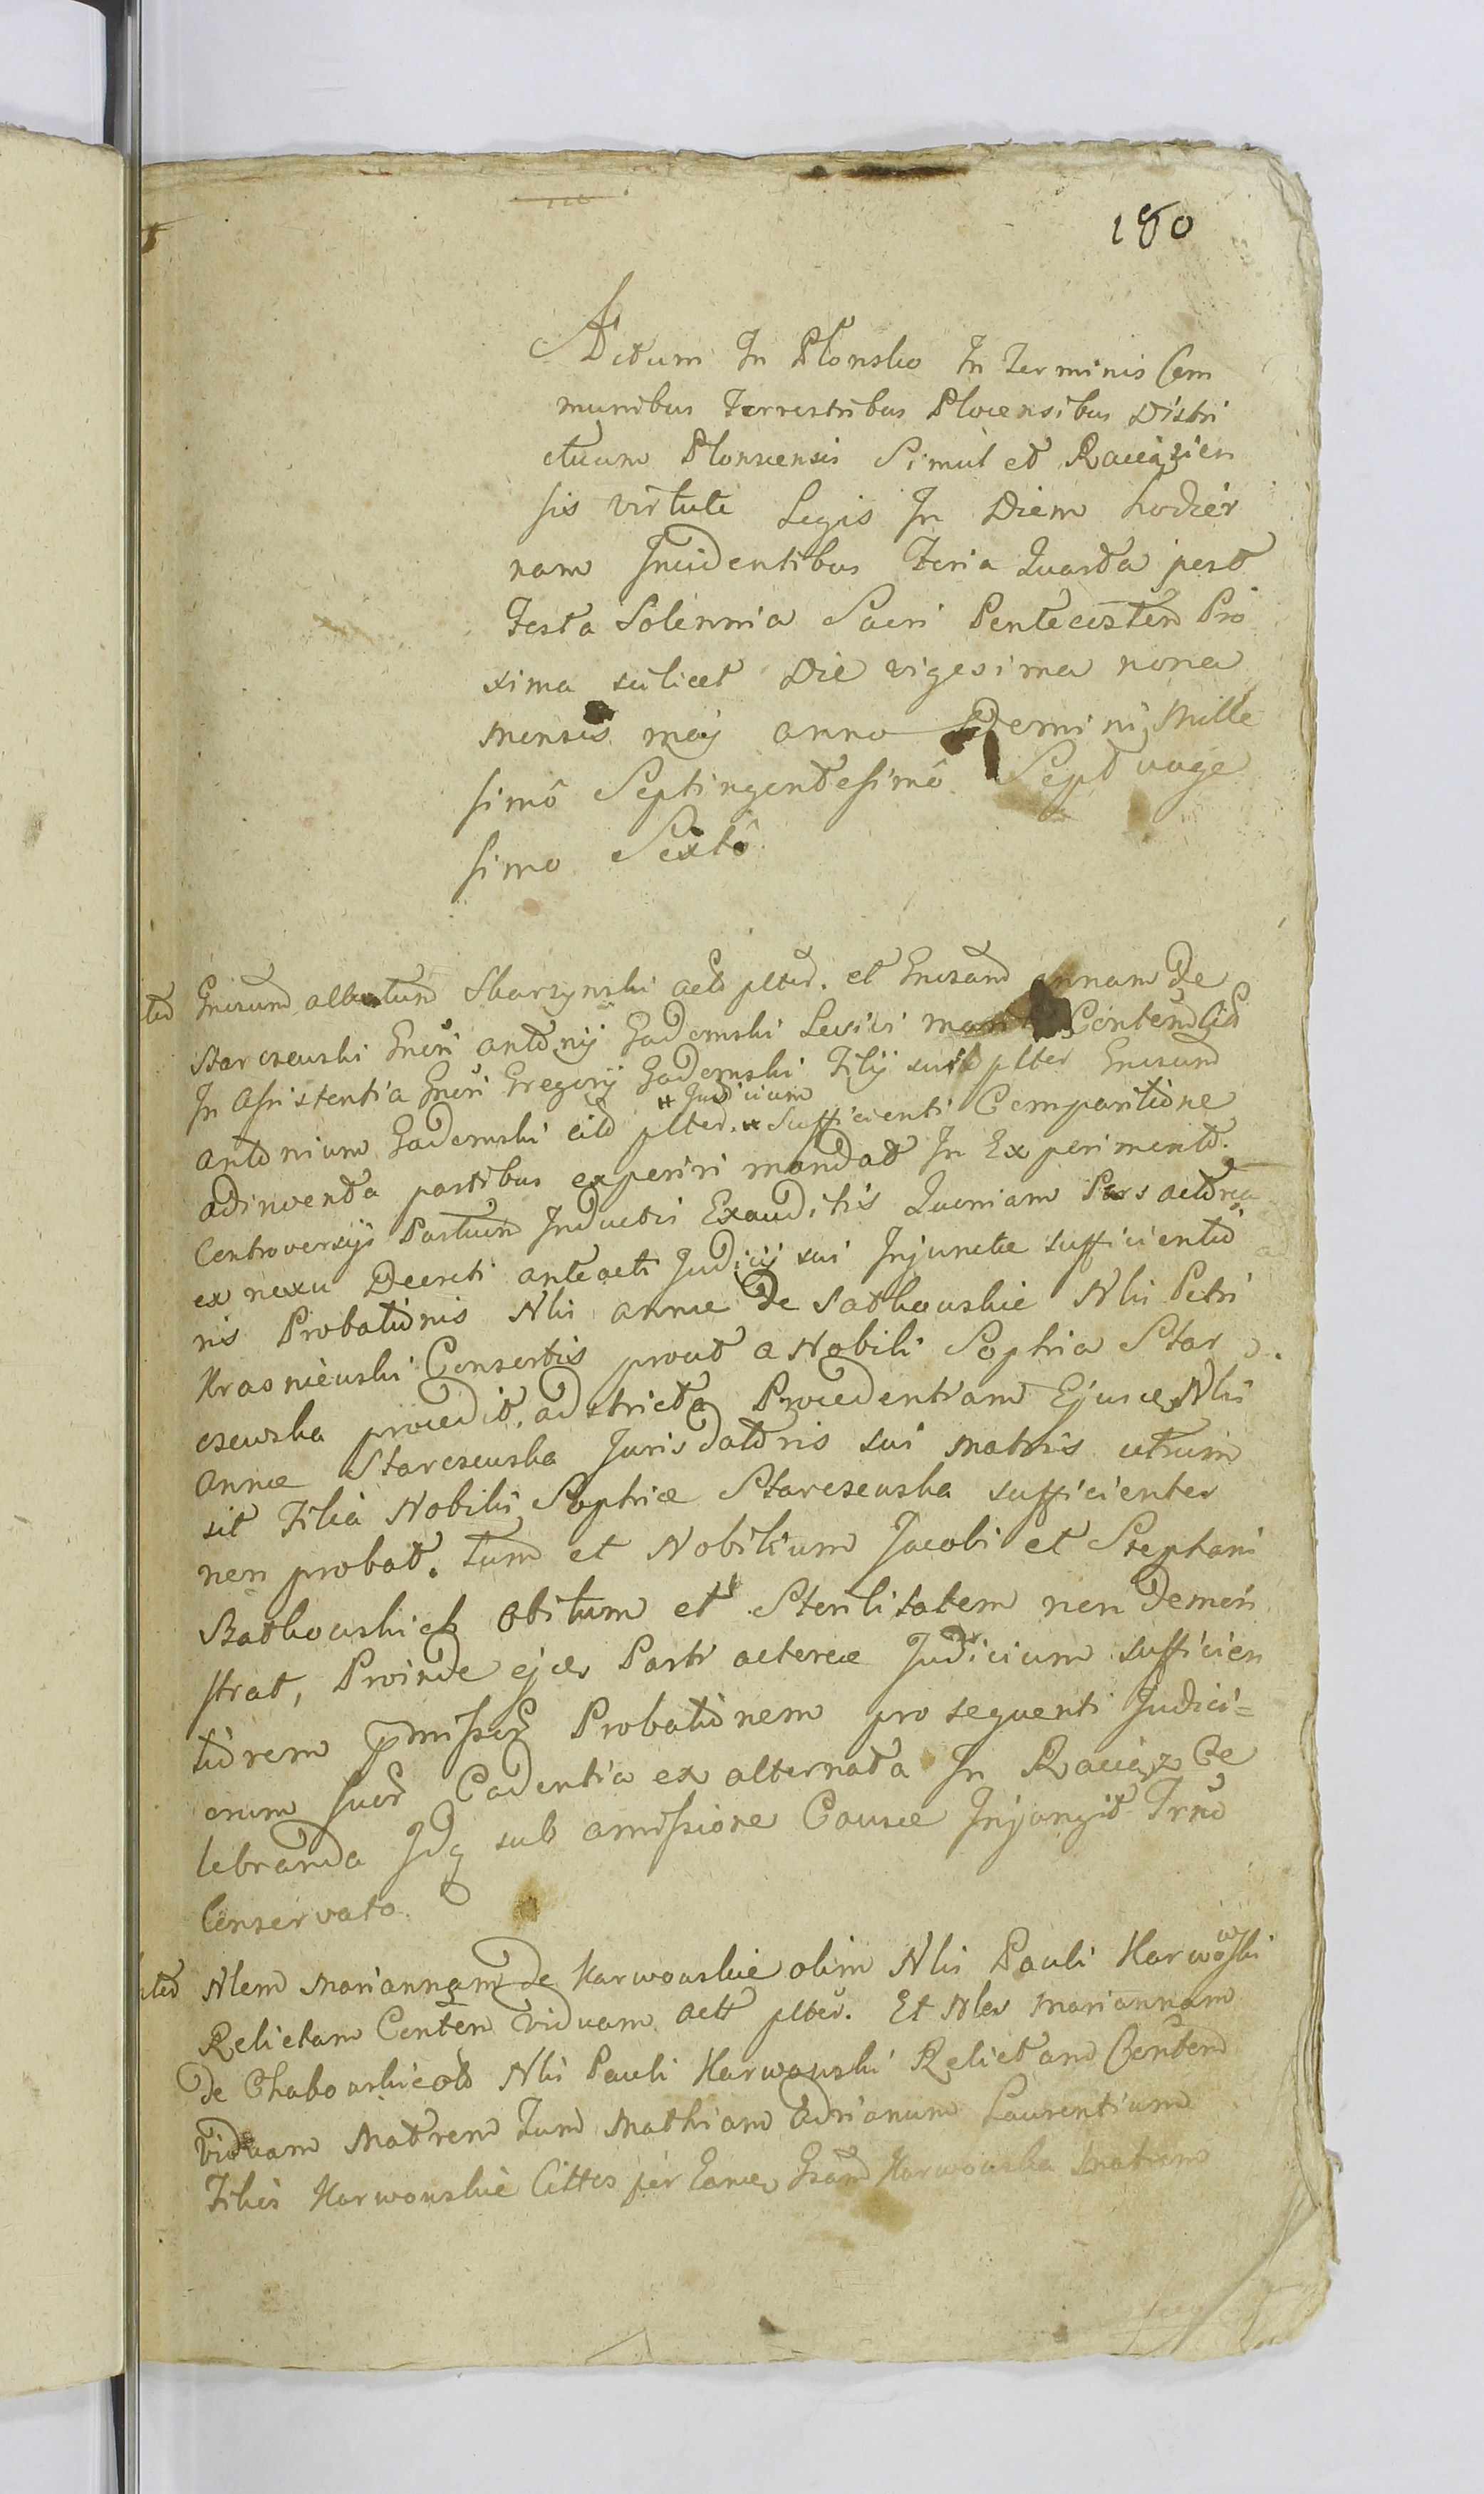 180
Actum In Płonsko In Terminis Com
munibus Terrestribus Plocensibus Distri
ctuum Plonscensis Simul et Raciązien
sis virtute Legis In Diem hodier
nam Incidentibus Feria Quarta post
Festa Solennia Sacri Pentecosten Pro
xima scilicet Die vigesima nona
mensis maij anno Domini Mille
simô Septingentesimô Septuage
simo Sextô
Skarzynski act plter. et annam De
Starczewski Gnosi antonij Gadomski
In Assistentia Gnosi Gregorij Gadomski Filij sui plter
Antonium Gadomski cit plter. * Sufficienti Comparitione
* Judicium
adinventa partibus experiri mandat In Experimento.
Controversijs Partium Inductis Exauditis Quoniam Pars actorea
ex nexu Decreti anteacti Judicij sui Injunctæ sufficientio
ris Probationis Nlis annæ De Satkowskie Nlis Petri
Krasniewski Consortis prout a Nobili Sophia Star
czewska procedit, adstricta Procedentiam Ejusce Nlis
Annæ Starczewska Jurisdatoris sui matris utrum
sit Filia Nobilis Sophiæ Starczewska sufficienter
non probat. Tum et Nobilium Jacobi et Stephani
Szatkowskich Obitum et Sterilitatem non Demon
strat, Proinde Parti actoreæ Judicium sufficien
tiorem Probationem pro sequenti Judici=
orum suor Cadentia ex alternata In Raciąz Ce
lebranda Idq sub amissione Causæ Injungit Trno
Conservato.
Nlem Mariannam De Karwowskie olim Nlis Pauli Karwowski
Relictam Conten viduam act plter. Et Mariannam
De Chabowskie Nlis Pauli Karwowski Relictam Conten
viduam Matrem Tum Mathiam Adrianum Laurentium
Filios Karwowskie Cittos per Karwowska Matrem